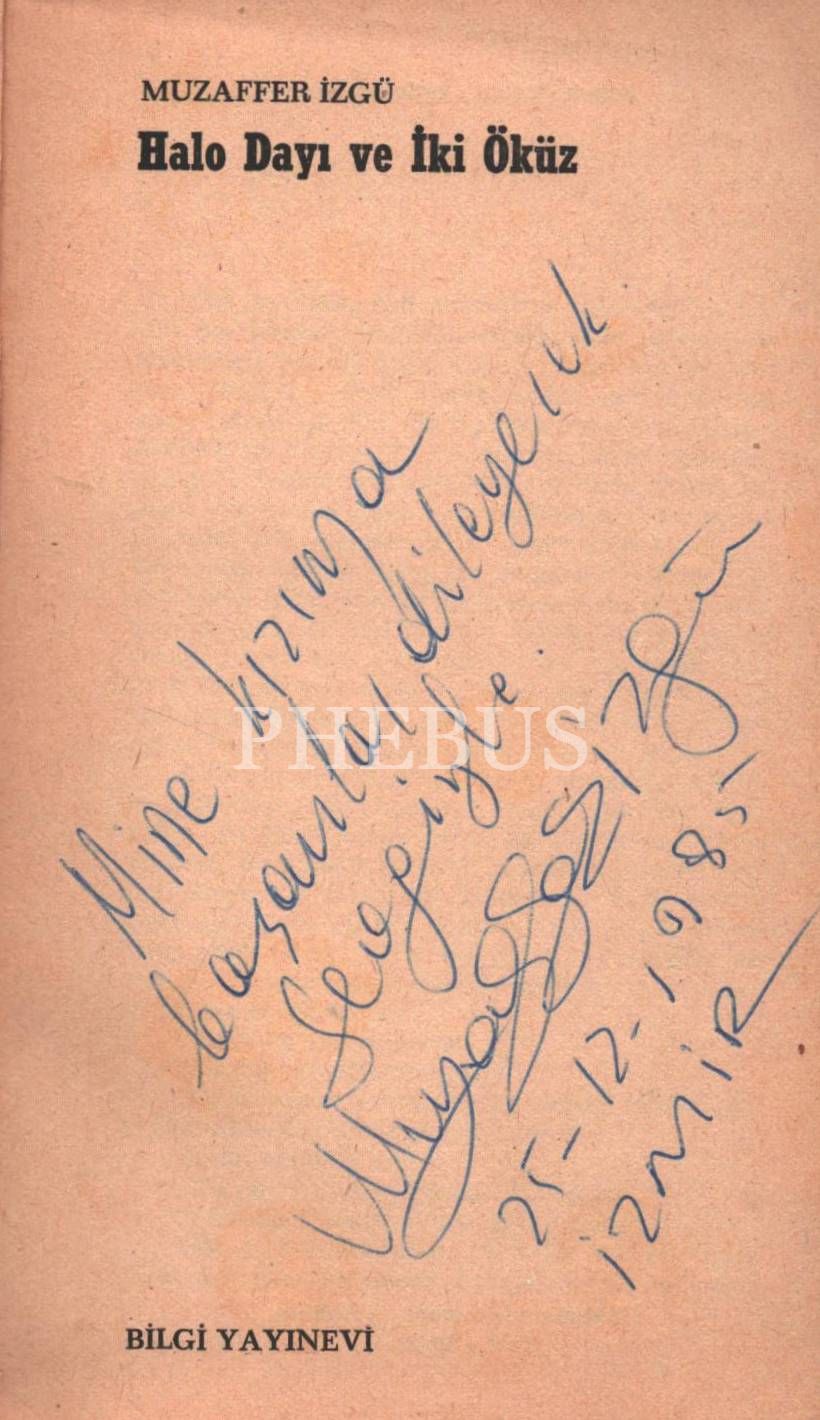 MUZAFFER İZGÜ
Halo Dayı ve İki Öküz
Mine kızıma
başarılar dileyerek
sevgiyle.
Muzaffer İzgü
25-12-1985
İZMİR
PHEBUS
BİLGİ YAYINEVİ